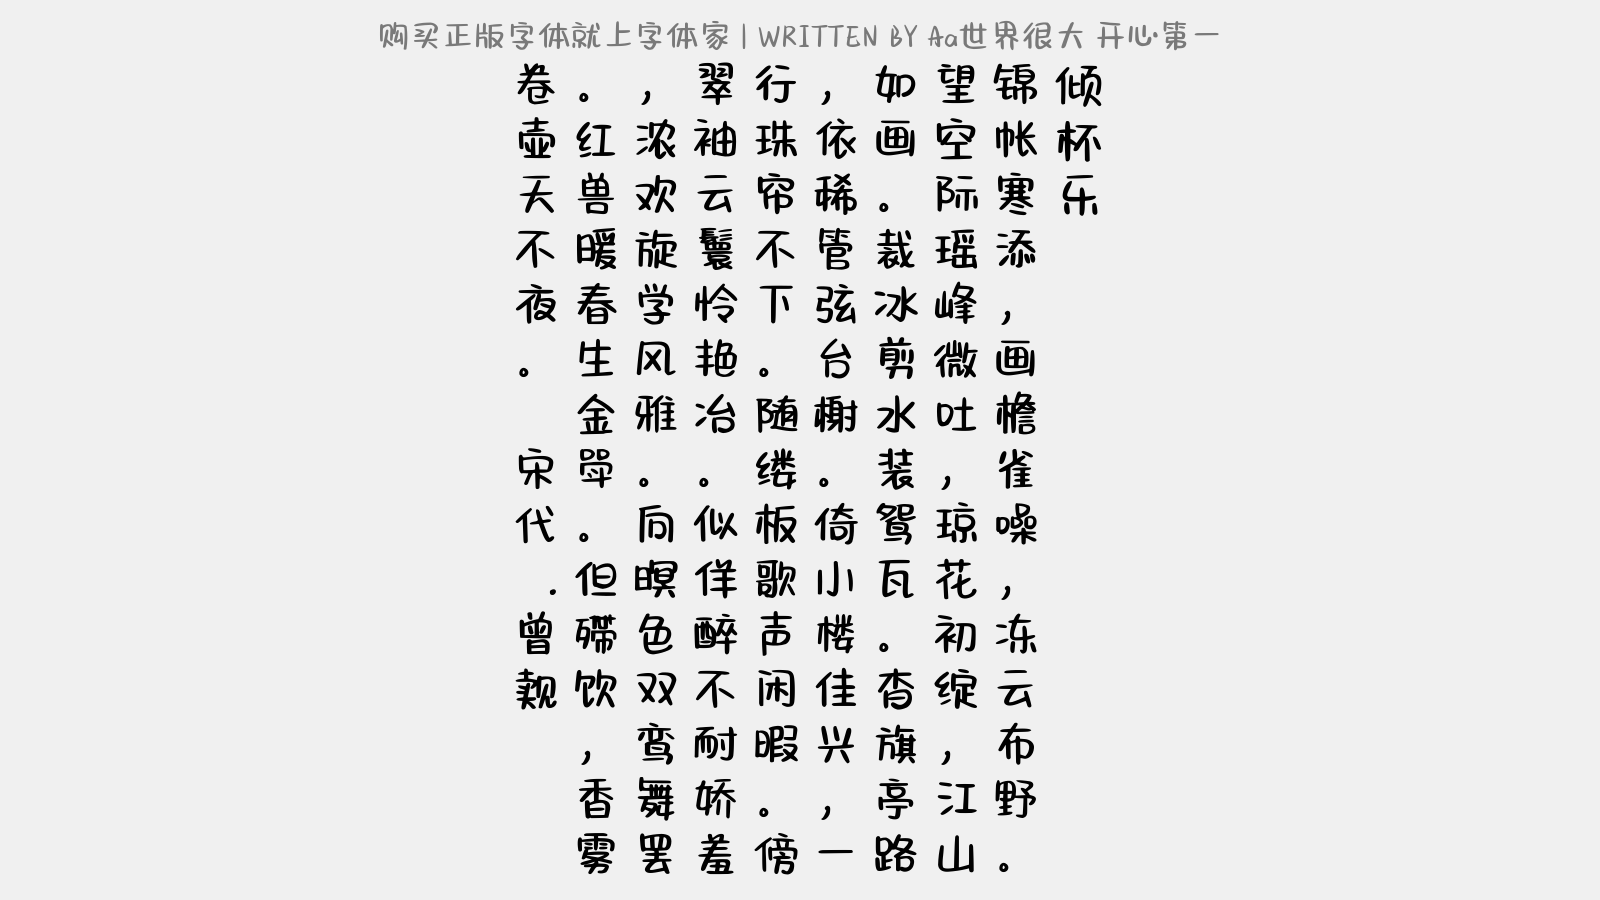 购买正版字体就上字体家 | WRITTEN BY Aa世界很大 开心·第一
倾杯乐
锦帐寒添,画檐雀噪,冻云布野。
望空际瑶峰微吐,琼花初绽,江山
如画。裁冰剪水装鸳瓦。杳旗亭路
,依稀管弦台榭。倚小楼佳兴,一
行珠帘不下。随缕板歌声闲暇。傍
翠袖云鬟怜艳冶。似佯醉不耐娇羞
,浓欢旋学风雅。向暝色双鸾舞罢
。红兽暖春生金斝。但殢饮,香雾
卷壶天不夜。
宋代.曾觌